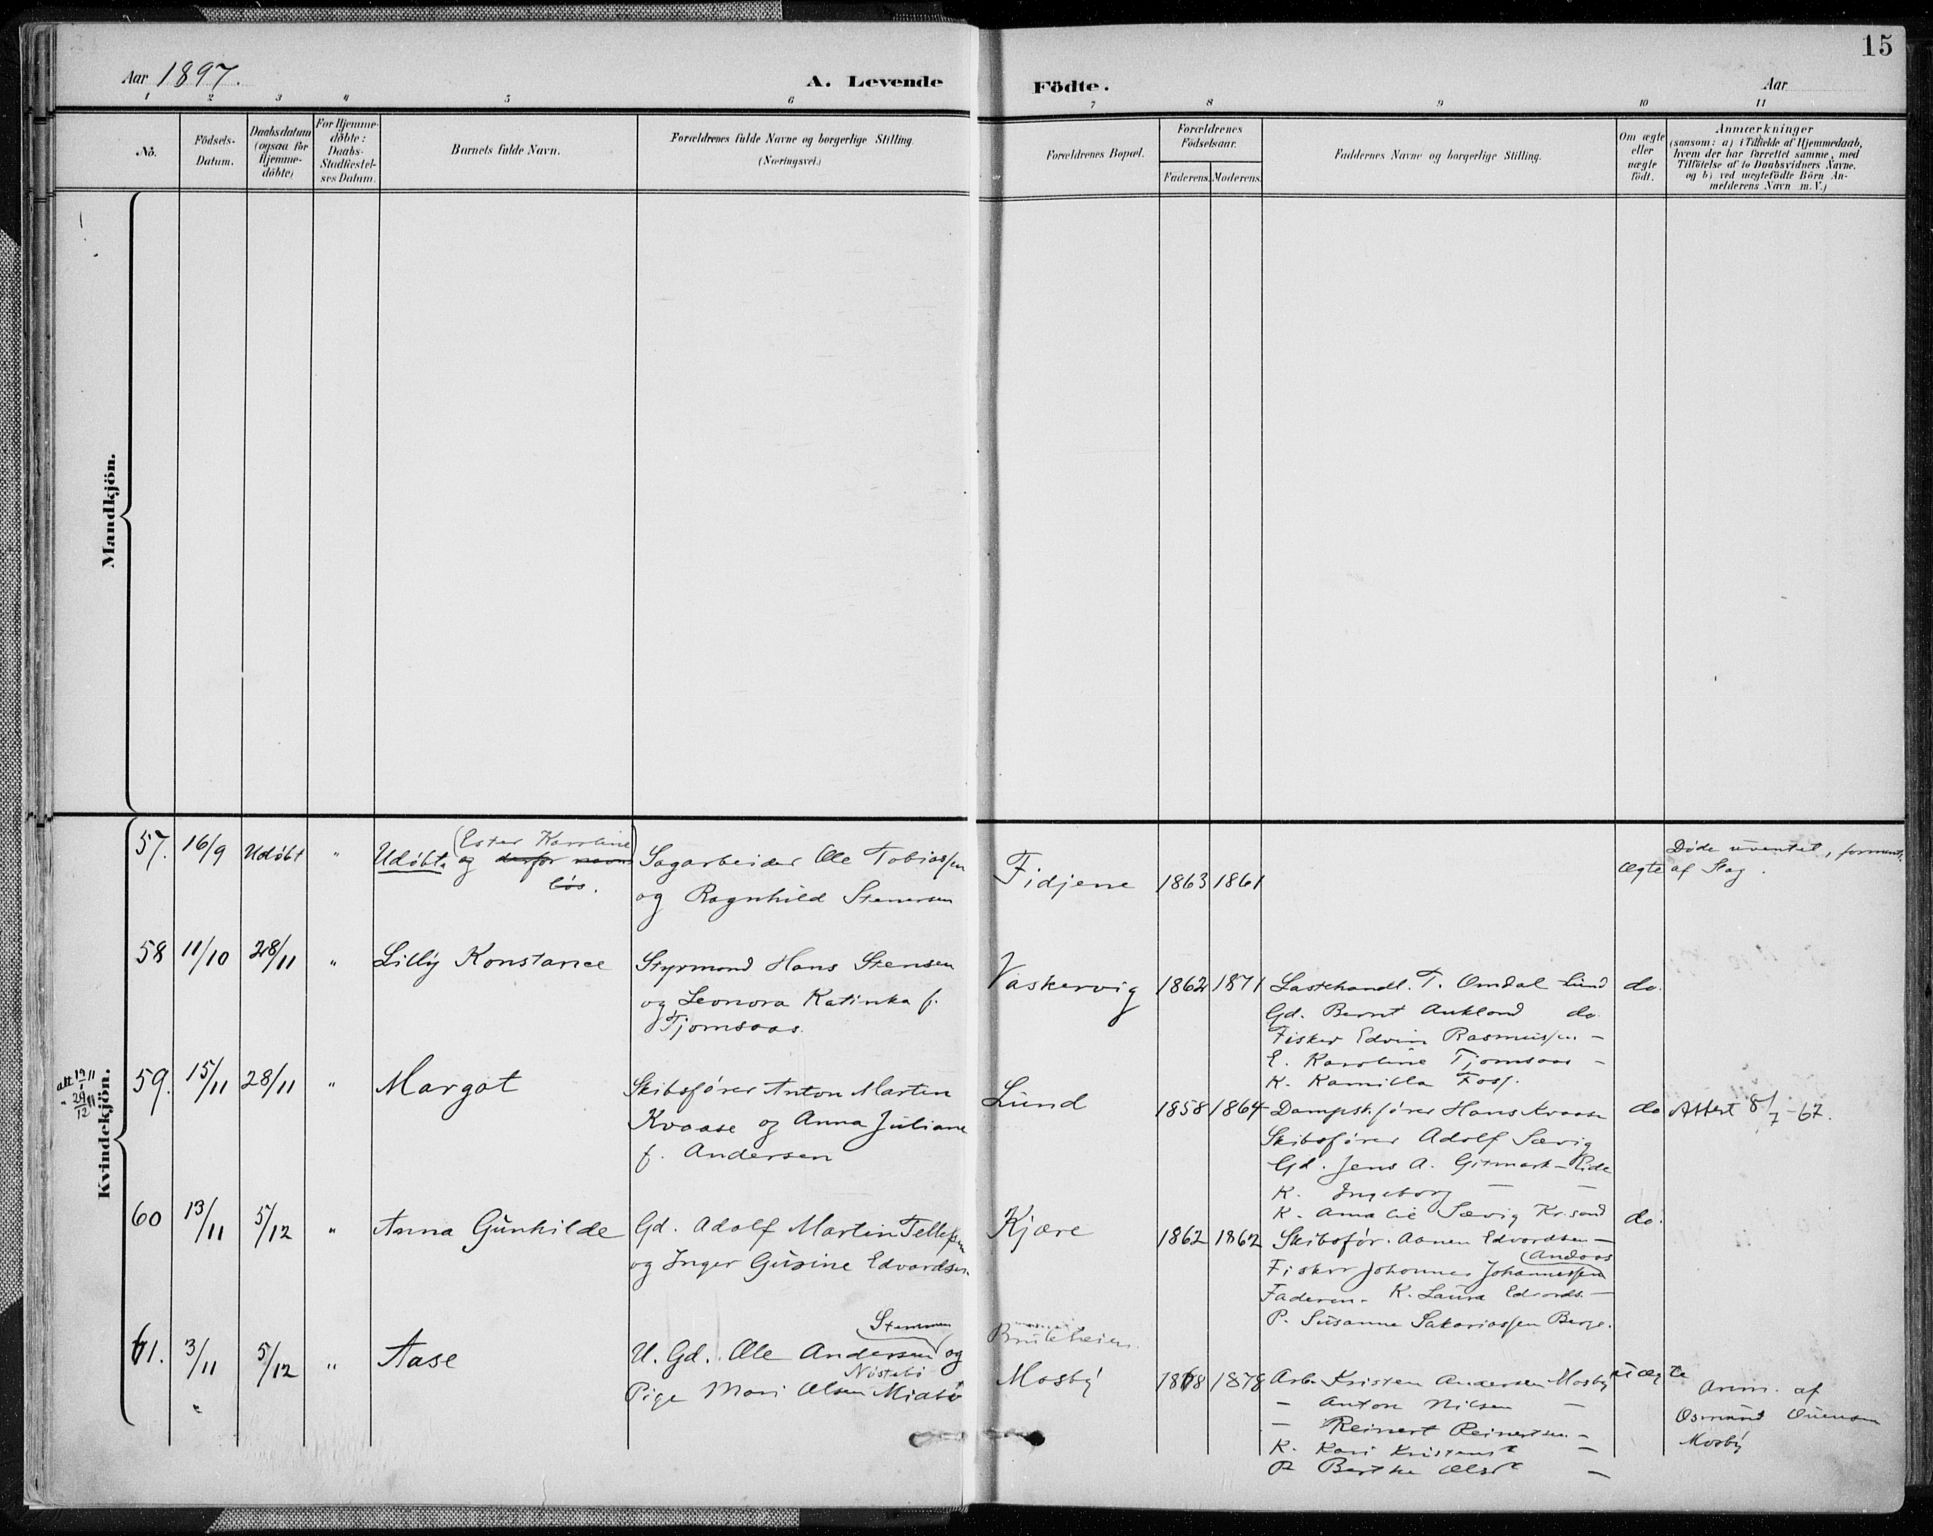 Aar 1897.
A. Levende
Födte.
Aar
15
1 2 3 4 5 6 7 8 9 10 11
No.
Födsels-
Datum.
Daabsdatum
(ogsaa for
Hjemme-
döbte)
For Hjemme-
döbte:
Daabs-
Stadfæstel-
ses Datum.
Barnets fulde Navn.
Forældrenes fulde Navne og borgerlige Stilling.
(Næringsvei.)
Forældrenes Bopæl.
Forældrenes
Födselsaar.
Faderens. Moderens.
Faddernes Navne og borgerlige Stilling.
Om ægte
eller
uægte
födt.
Anmærkninger
(saasom: a) i Tilfælde af Hjemmedaab,
hvem der har forrettet samme, med
Tilföielse af to Daabsvidners Navne.
og b) ved uægtefödte Börn An-
melderens Navn m. V.)
Mandkjön.
Kvindekjön.
57. 16/9 Udøbt " Udøbt og derfor navn
(Ester Karoline)
løs.
Sagarbeider Ole Tobiassen
og Ragnhild Stenersen
Fidjene 1863 1861
ægte
Døde uventet, forment.
af Slag.
58 11/10 28/11 " Lilly Konstance
Styrmand Hans Stensen
og Leonora Katinka f.
Tjomsaas.
Vaskervig 1862 1871
Lastehandl. T. Omdal Lund
Gd. Bernt Aukland do
Fisker Edvin Rasmussen -
E. Karoline Tjomsaas -
K. Kamilla Foss.
do.
att 19/11
- 29/12 11
59. 15/11 28/11 " Margot
Skibsfører Anton Martin
Kvaase og Anna Juliane
f. Andersen
Lund 1858 1864
Dampsk.fører Hans Kvaase
Skibsfører Adolf Sævig
Gd. Jens A. Gitmark - Eide
K. Ingeborg - -
K. Amalie Sævig Kr.sand
do Attest 8/7 - 67.
60 13/11 5/12 " Anna Gunhilde
Gd. Adolf Martin Tellefsen
og Inger Gusine Edvardsen.
Kjære 1862 1862
Skibsfør. Aanen Edvardsen -
(Andaas
Fisker Johannes Johannessen
Faderen. K. Laura Edvards. -
P. Susanne Sakariassen Berge.
do.
61. 3/11 5/12 " Aase
Stemmen
U. Gd. Ole Andersen og
Nøstebø
Pige Mari Olsen Midbø
"
Mosby 1868 1878
Arb. Kristen Andersen Mosby
- Anton Nilsen -
- Reinert Reinertsen -
K. Kari Kristens. -
P. Berthe Olsd. -
uægte
Anm. af
Osmund
Mosby